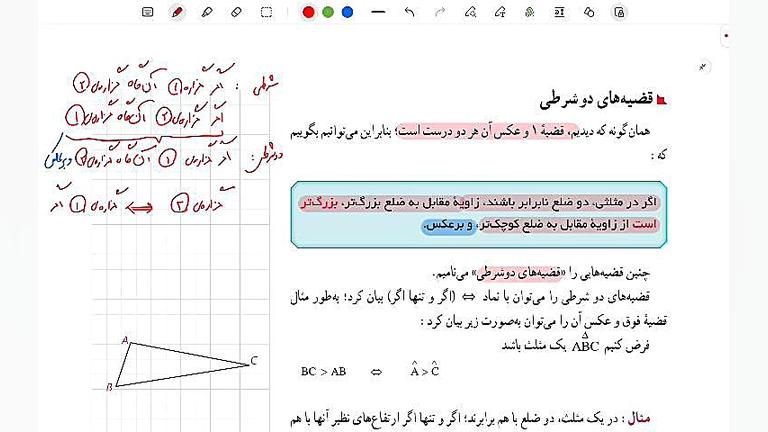 قضیه‌های دو شرطی
همان‌گونه که دیدیم، قضیهٔ ۱ و عکس آن هر دو درست است؛ بنابراین می‌توانیم بگوییم
که :
اگر در مثلثی، دو ضلع نابرابر باشند، زاویهٔ مقابل به ضلع بزرگ‌تر، بزرگ‌تر
است از زاویهٔ مقابل به ضلع کوچک‌تر، و برعکس.
چنین قضیه‌هایی را «قضیه‌های دوشرطی» می‌نامیم.
قضیه‌های دو شرطی را می‌توان با نماد ⇔ (اگر و تنها اگر) بیان کرد؛ به‌طور مثال
قضیهٔ فوق و عکس آن را می‌توان به‌صورت زیر بیان کرد :
فرض کنیم ABC یک مثلث باشد
BC > AB ⇔ Â > Ĉ
مثال : در یک مثلث، دو ضلع با هم برابرند؛ اگر و تنها اگر ارتفاع‌های نظیر آنها با هم
شرطی : اگر گزاره‌ی ۱ آن‌گاه گزاره‌ی ۲
اگر گزاره‌ی ۲ آن‌گاه گزاره‌ی ۱
دوشرطی : اگر گزاره‌ی ۱ آن‌گاه گزاره‌ی ۲ و برعکس
گزاره‌ی ۲ ⇔ گزاره‌ی ۱ اگر
A
C
B